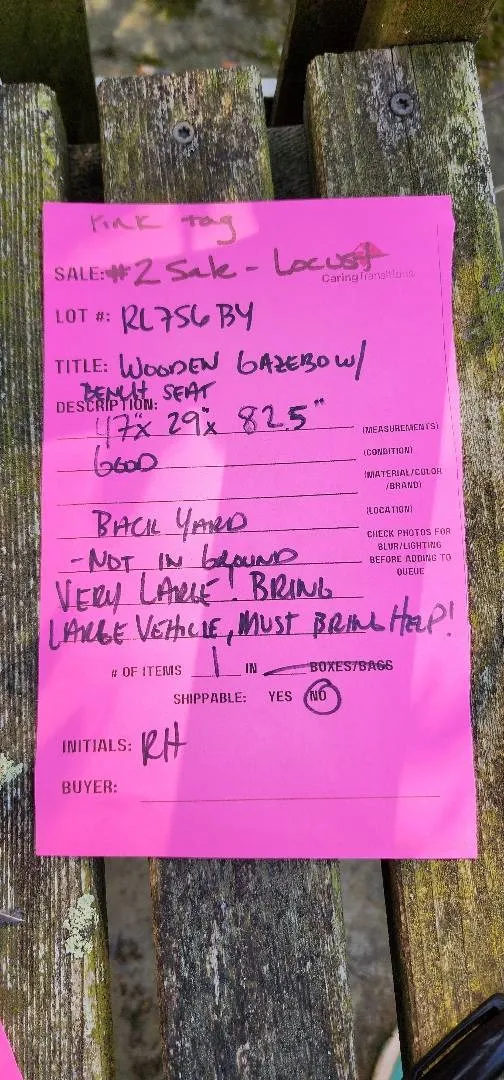 Pink Tag
SALE: #2 Sale - Locust
CaringTransitions
LOT #: RL756BY
TITLE: WOODEN GAZEBO W/
BENCH SEAT
DESCRIPTION:
47"x 29"x 82.5" (MEASUREMENTS)
GOOD (CONDITION)
(MATERIAL/COLOR
/BRAND)
BACK YARD (LOCATION)
- NOT IN GROUND CHECK PHOTOS FOR
BLUR/LIGHTING
BEFORE ADDING TO
QUEUE
VERY LARGE! BRING
LARGE VEHICLE, MUST BRING HELP!
# OF ITEMS 1 IN BOXES/BAGS
SHIPPABLE: YES NO
INITIALS: RH
BUYER: